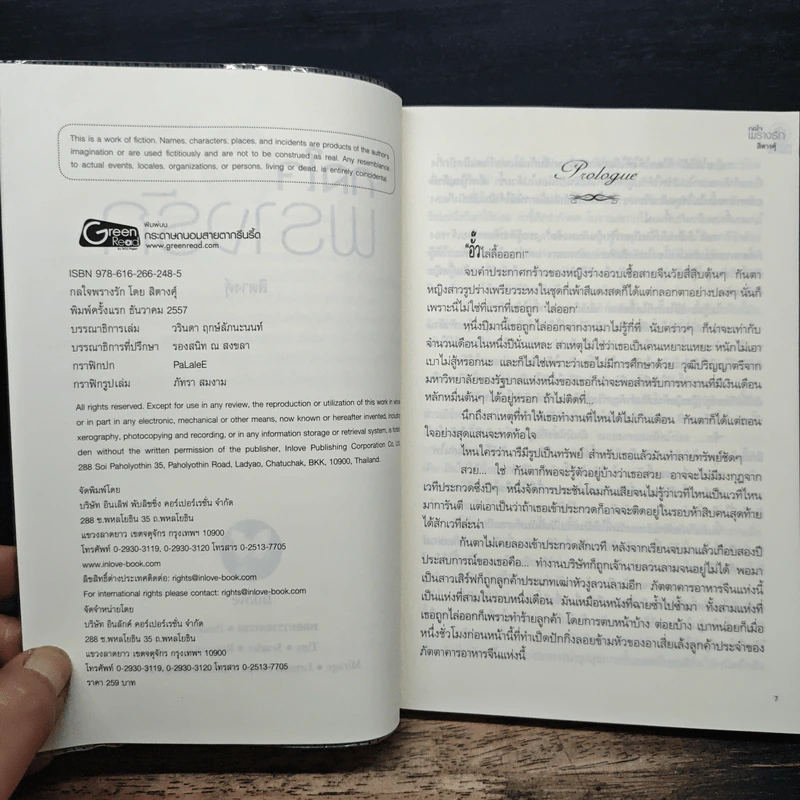 This is a work of fiction. Names, characters, places, and incidents are products of the author's
imagination or are used fictitiously and are not to be construed as real. Any resemblance
to actual events, locales, organizations, or persons, living or dead, is entirely coincidental.
Green
Read
พิมพ์บน
กระดาษถนอมสายตากรีนรี้ด
www.greenread.com
ISBN 978-616-266-248-5
กลใจพรางรัก โดย สิตางศุ์
พิมพ์ครั้งแรก ธันวาคม 2557
บรรณาธิการเล่ม วรินดา ฤกษ์ลักนะนนท์
บรรณาธิการที่ปรึกษา รองสนิท ณ สงขลา
กราฟิกปก PaLaleE
กราฟิกรูปเล่ม ภัทรา สมงาม
All rights reserved. Except for use in any review, the reproduction or utilization of this work in
or in part in any electronic, mechanical or other means, now known or hereafter invented, including
xerography, photocopying and recording, or in any information storage or retrieval system, is
den without the written permission of the publisher, Inlove Publishing Corporation Co.,
288 Soi Paholyothin 35, Paholyothin Road, Ladyao, Chatuchak, BKK, 10900, Thailand.
จัดพิมพ์โดย
บริษัท อินเลิฟ พับลิชชิ่ง คอร์เปอร์เรชั่น จำกัด
288 ซ.พหลโยธิน 35 ถ.พหลโยธิน
แขวงลาดยาว เขตจตุจักร กรุงเทพฯ 10900
โทรศัพท์ 0-2930-3119, 0-2930-3120 โทรสาร 0-2513-7705
www.inlove-book.com
ลิขสิทธิ์ต่างประเทศติดต่อ: rights@inlove-book.com
For international rights please contact: rights@inlove-book.com
จัดจำหน่ายโดย
บริษัท อินลักค์ คอร์เปอร์เรชั่น จำกัด
288 ซ.พหลโยธิน 35 ถ.พหลโยธิน
แขวงลาดยาว เขตจตุจักร กรุงเทพฯ 10900
โทรศัพท์ 0-2930-3119, 0-2930-3120 โทรสาร 0-2513-7705
ราคา 259 บาท
กลใจ
พรางรัก
สิตางศุ์
Prologue
"อั๊วไล่ลื้อออก!"
จบคำประกาศกร้าวของหญิงร่างอวบเชื้อสายจีนวัยสี่สิบต้นๆ กันตา
หญิงสาวรูปร่างเพรียวระหงในชุดกี่เพ้าสีแดงสดก็ได้แต่กลอกตาอย่างปลงๆ นั่นก็
เพราะนี่ไม่ใช่ที่แรกที่เธอถูก 'ไล่ออก'
หนึ่งปีมานี้เธอถูกไล่ออกจากงานมาไม่รู้กี่ที่ นับคร่าวๆ ก็น่าจะเท่ากับ
จำนวนเดือนในหนึ่งปีนั่นแหละ สาเหตุไม่ใช่ว่าเธอเป็นคนเหยาะแหยะ หนักไม่เอา
เบาไม่สู้หรอกนะ และก็ไม่ใช่เพราะว่าเธอไม่มีการศึกษาด้วย วุฒิปริญญาตรีจาก
มหาวิทยาลัยของรัฐบาลแห่งหนึ่งของเธอก็น่าจะพอสำหรับการหางานที่มีเงินเดือน
หลักหมื่นต้นๆ ได้อยู่หรอก ถ้าไม่ติดที่...
นึกถึงสาเหตุที่ทำให้เธอทำงานที่ไหนได้ไม่เกินเดือน กันตาก็ได้แต่ถอน
ใจอย่างสุดแสนจะทดท้อใจ
ไหนใครว่านารีมีรูปเป็นทรัพย์ สำหรับเธอแล้วมันทำลายทรัพย์ชัดๆ
สวย... ใช่ กันตาก็พอจะรู้ตัวอยู่บ้างว่าเธอสวย อาจจะไม่มีมงกุฎจาก
เวทีประกวดซึ่งปีๆ หนึ่งจัดการประชันโฉมกันเสียจนไม่รู้ว่าเวทีไหนเป็นเวทีไหน
มาการันตี แต่เอาเป็นว่าถ้าเธอเข้าประกวดก็อาจจะติดอยู่ในรอบห้าสิบคนสุดท้าย
ได้สักเวทีล่ะน่า
กันตาไม่เคยลองเข้าประกวดสักเวที หลังจากเรียนจบมาแล้วเกือบสองปี
ประสบการณ์ของเธอคือ... ทำงานบริษัทก็ถูกเจ้านายลวนลามจนอยู่ไม่ได้ พอมา
เป็นสาวเสิร์ฟก็ถูกลูกค้าประเภทเฒ่าหัวงูลวนลามอีก ภัตตาคารอาหารจีนแห่งนี้
เป็นแห่งที่สามในรอบหนึ่งเดือน มันเหมือนหนังที่ฉายซ้ำไปซ้ำมา ทั้งสามแห่งที่
เธอถูกไล่ออกก็เพราะทำร้ายลูกค้า โดยการตบหน้าบ้าง ต่อยบ้าง เบาหน่อยก็เมื่อ
หนึ่งชั่วโมงก่อนหน้านี้ที่ทำเป็ดปักกิ่งลอยข้ามหัวของอาเสี่ยเส็งลูกค้าประจำของ
ภัตตาคารอาหารจีนแห่งนี้
7